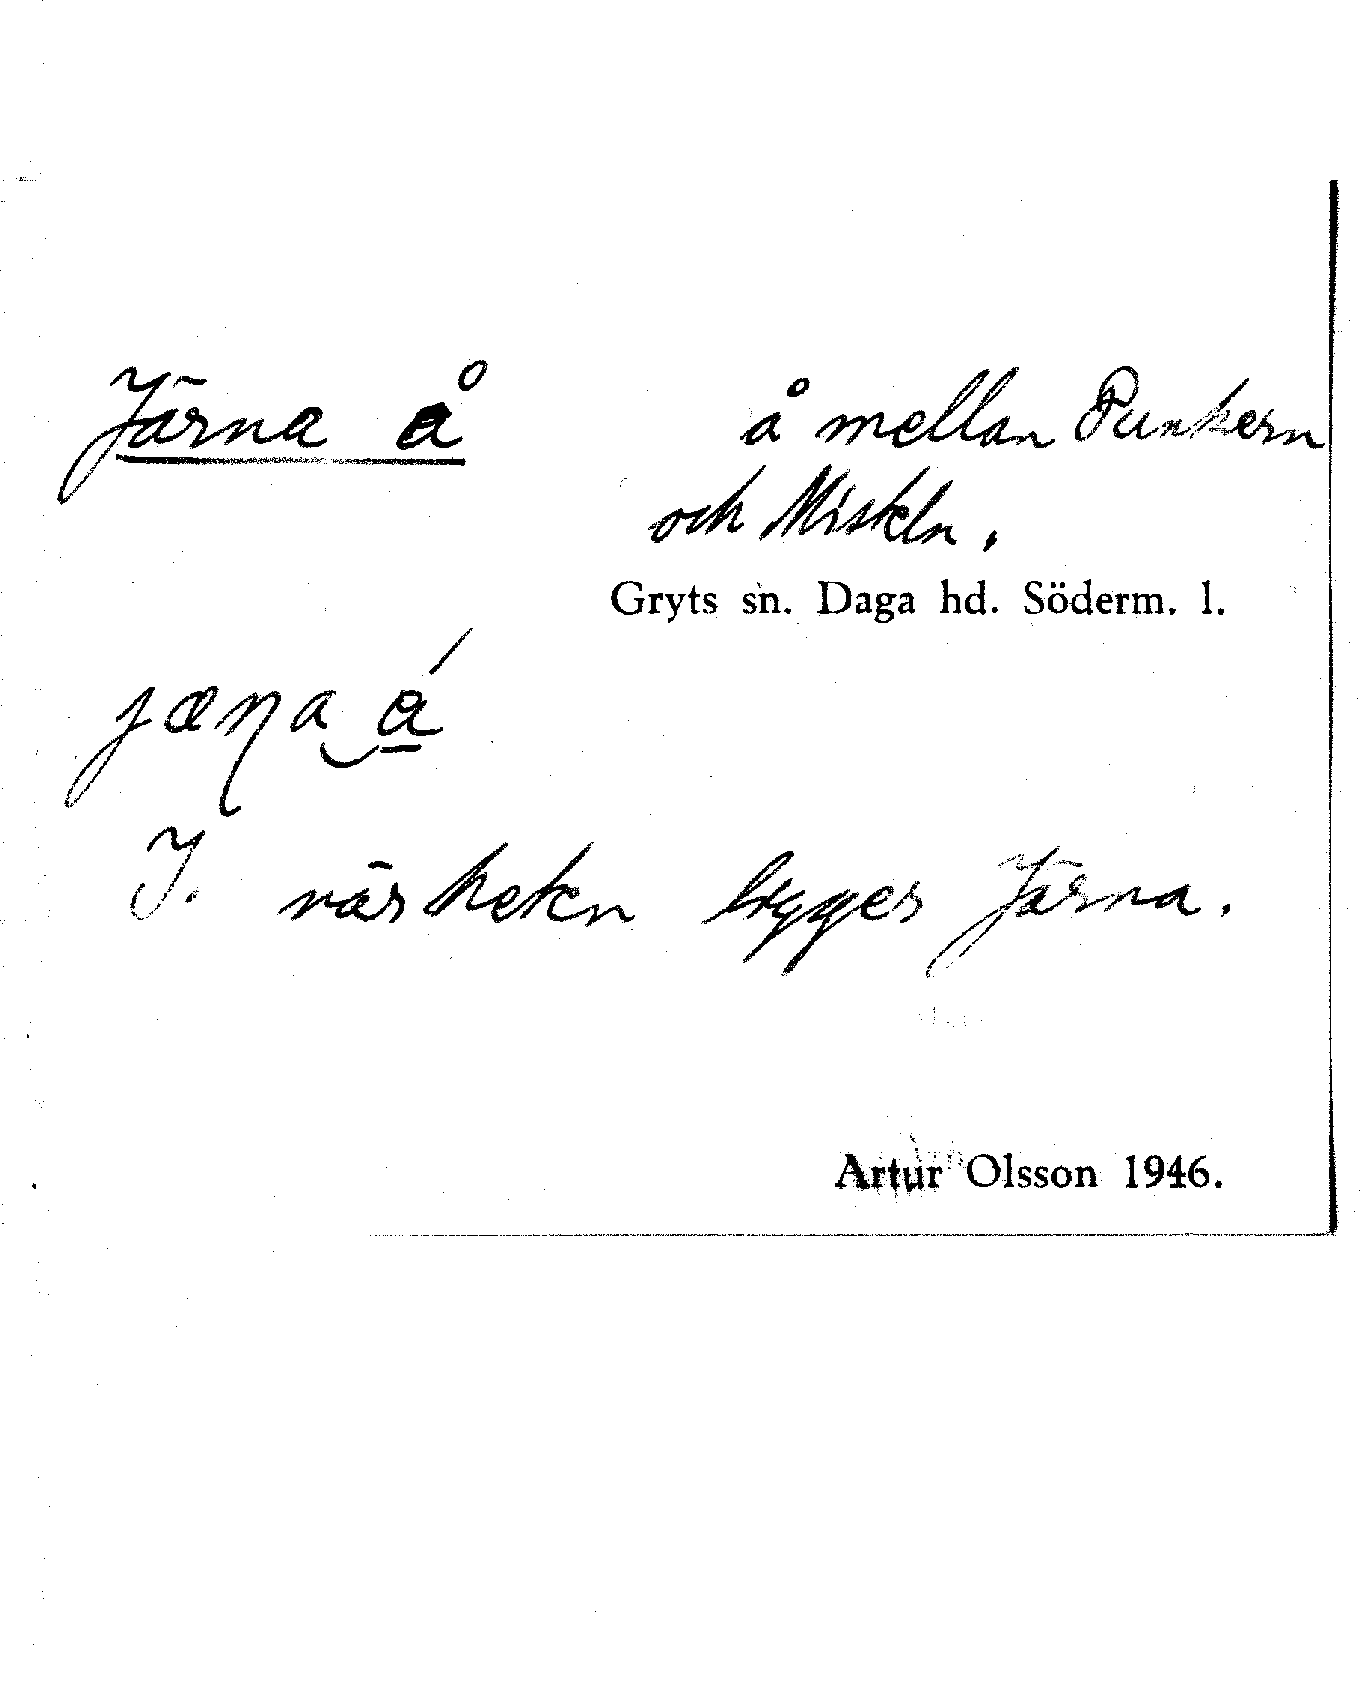 Järna å
å mellan Punkern
och Miskeln.
Gryts sn. Daga hd. Söderm. l.
I. närheten ligger Järna.
Artur Olsson 1946.